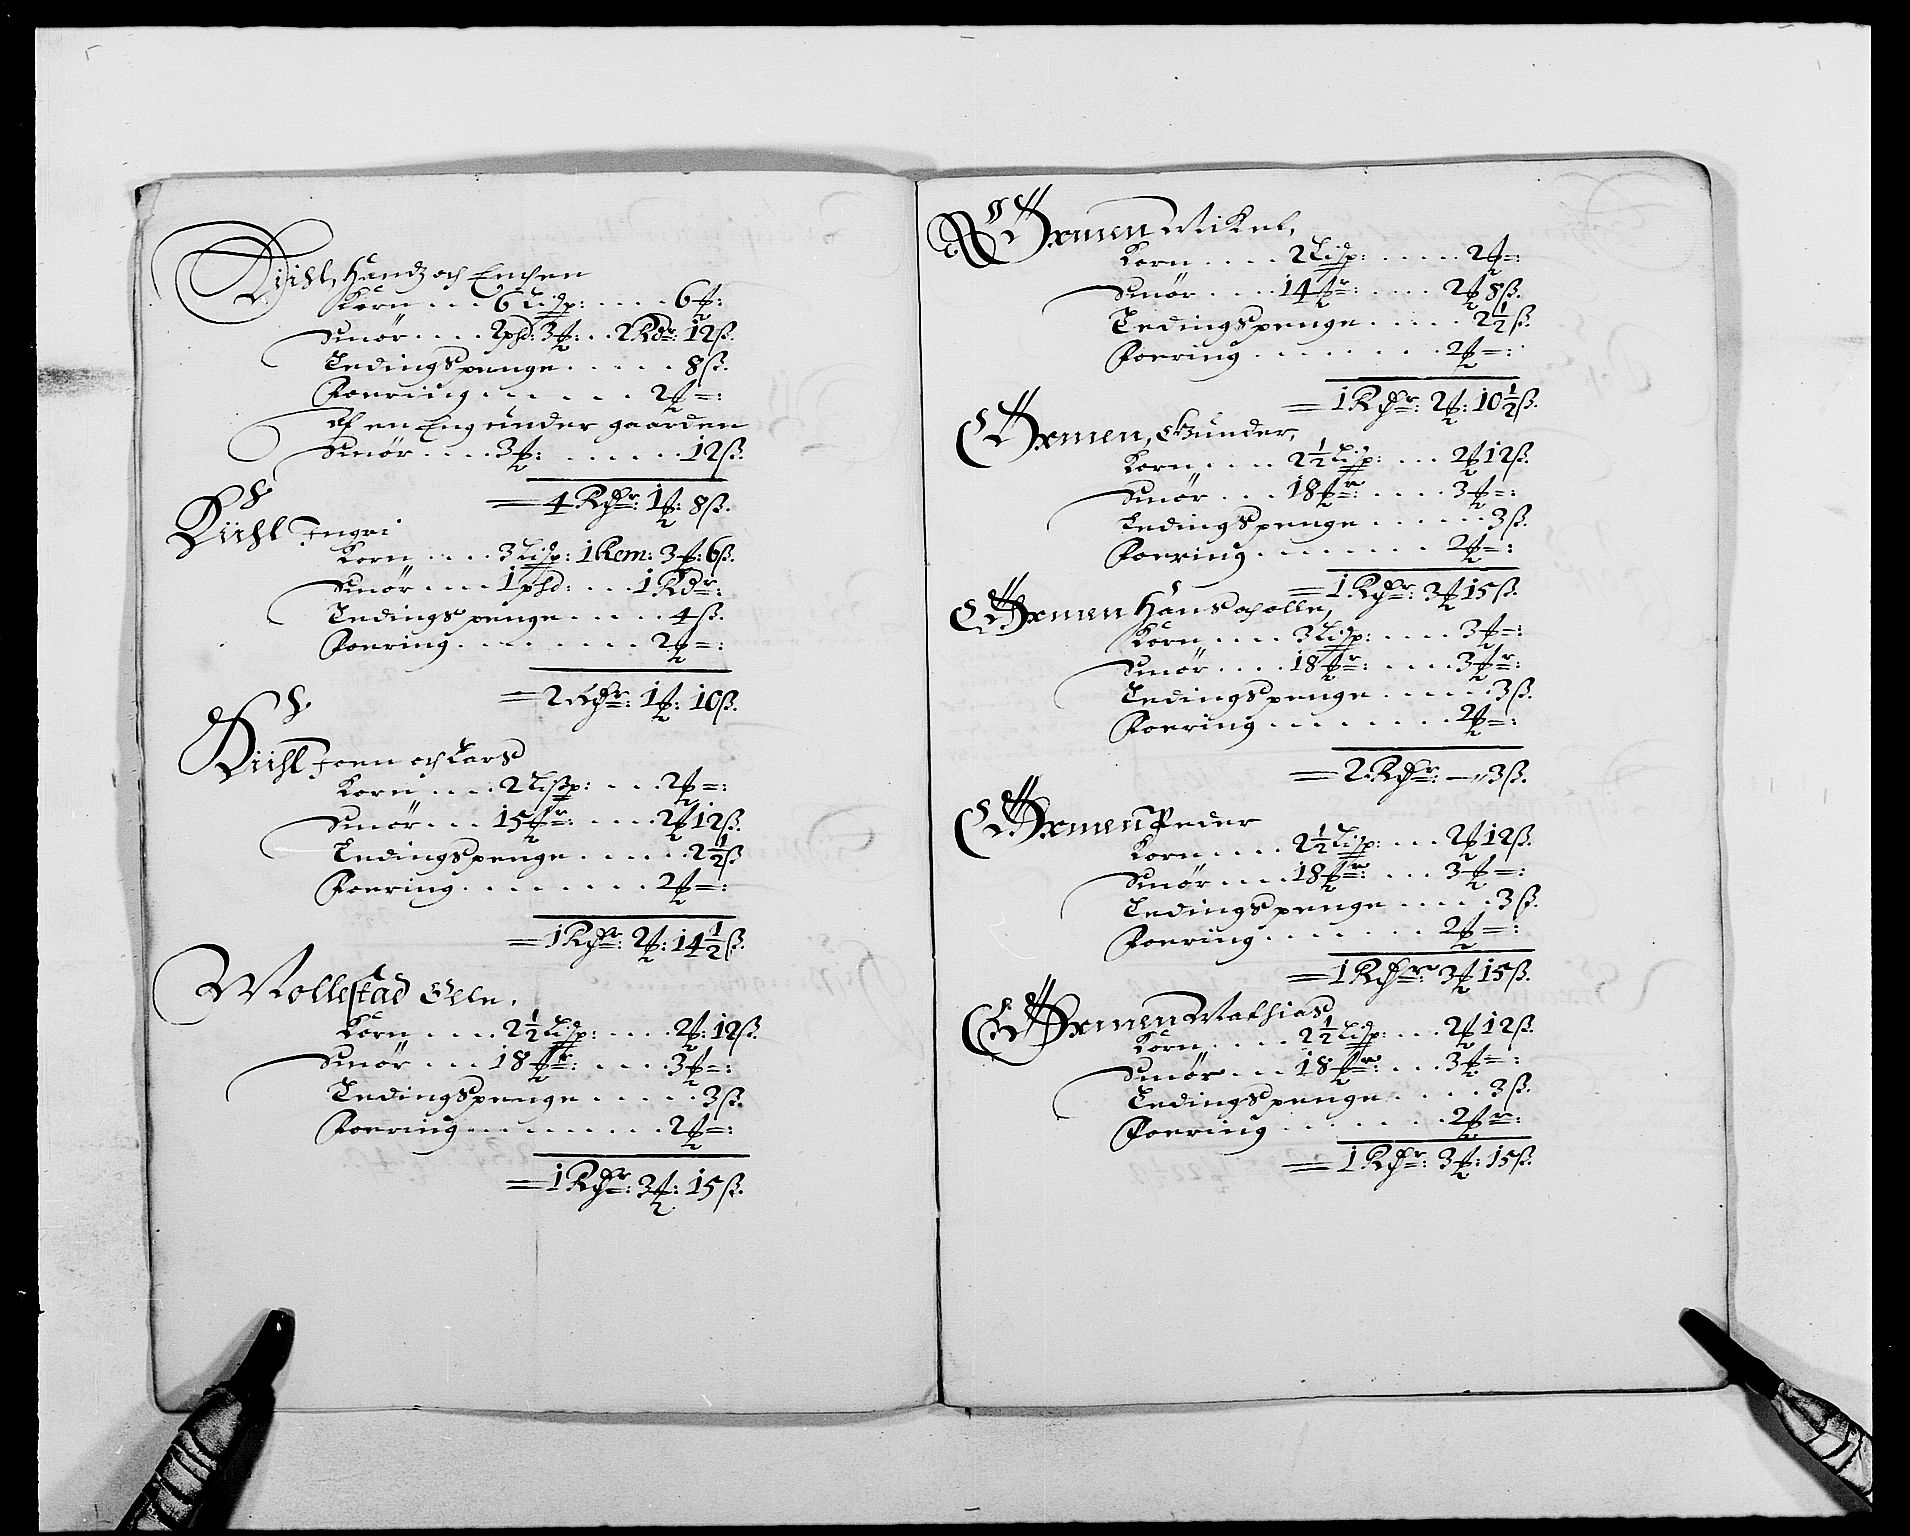 Diihl, Handz och Enchen
Korn . . . 6 Lisp: . . . . 6 ℔:
Smör . . . . 2 pd: 3 ℔: . . 2 Rdr: 12 ß.
Tedingspenge . . . . . 8 ß.
Foering . . . . . . 2 ℔ =:
Af en Eng under gaarden
Smör . . . . 3 ℔: . . . . . . 12 ß.
= 4 Rdr: 1 ℔: 8 ß.
Diihl Ingri
Korn . . . . 3 Lisp: 1 Rem: 3 ℔: 6 ß.
Smör . . . . 1 pd: . . . 1 Rdr:
Tedingspenge . . . . . 4 ß.
Foering . . . . . . . . 2 ℔ =:
= 2 Rdr: 1 ℔: 10 ß.
Diihl Joen och Lars
Korn . . . . 2 Lisp: . . . 2 ℔ =:
Smör . . . 15 ℔r: . . . . 2 ℔ 12 ß.
Tedingspenge . . . . . . 2½ ß
Foering . . . . . . . . 2 ℔ =:
= 1 Rdr: 2 ℔: 14½ ß.
Mollestad Olle.
Korn . . . . 2½ Lisp: . . . . 2 ℔: 12 ß.
Smör . . . 18 ℔r: . . . . 3 ℔ =:
Tedingspenge . . . . . 3 ß.
Foering . . . . . . . . . 2 ℔ =:
= 1 Rdr: 3 ℔: 15 ß.
Oxmen Mikel,
Korn . . . . 2 Lisp: . . . . . 2 ℔ =:
Smör . . . . 14 ℔r: . . . . 2 ℔ 8 ß.
Tedingspenge . . . . . 2½ ß.
Foering . . . . . . . . 2 ℔ =:
= 1 Rdr: 2 ℔: 10½ ß.
Oxmen, Gunder,
Korn . . . . 2½ Lisp: . . . 2 ℔ 12 ß.
Smör . . . 18 ℔r: . . . . 3 ℔ =:
Tedingspenge . . . . . . 3 ß.
Foering . . . . . . . . 2 ℔ =:
= 1 Rdr: 3 ℔ 15 ß.
Oxmen Hans och olle,
Korn . . . . 3 Lisp: . . . . 3 ℔ =:
Smör . . . . 18 ℔r: . . . . 3 ℔r:
Tedingspenge . . . . . 3 ß.
Foering . . . . . . . . 2 ℔ =:
= 2 Rdr: — „ 3 ß.
Oxmen Peder
Korn . . . . 2½ Lisp: . . . 2 ℔ 12 ß.
Smör . . . . 18 ℔r: . . . 3 ℔ =:
Tedingspenge . . . . . 3 ß.
Foering . . . . . . . 2 ℔ =:
= 1 Rdr: 3 ℔ 15 ß.
Oxmen Mathias
Korn . . . . 2½ Lisp: . . . 2 ℔ 12 ß.
Smör . . . 18 ℔r: . . . 3 ℔ =:
Tedingspenge . . . . . 3 ß.
Foering . . . . . . . 2 ℔r:
= 1 Rdr: 3 ℔: 15 ß.